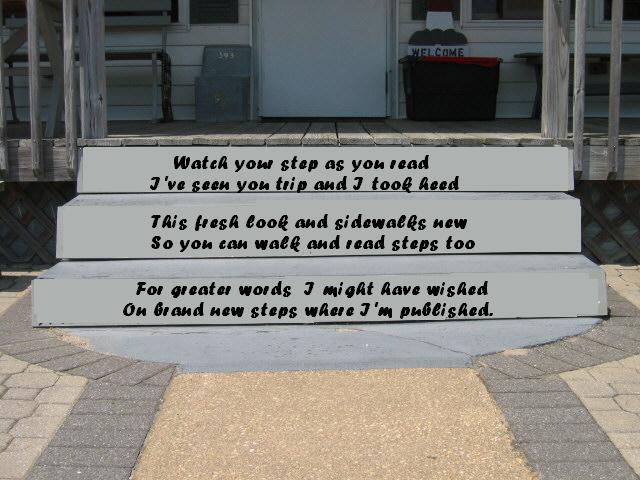 393
WELCOME
Watch your step as you read
I've seen you trip and I took heed
This fresh look and sidewalks new
So you can walk and read steps too
For greater words I might have wished
On brand new steps where I'm published.